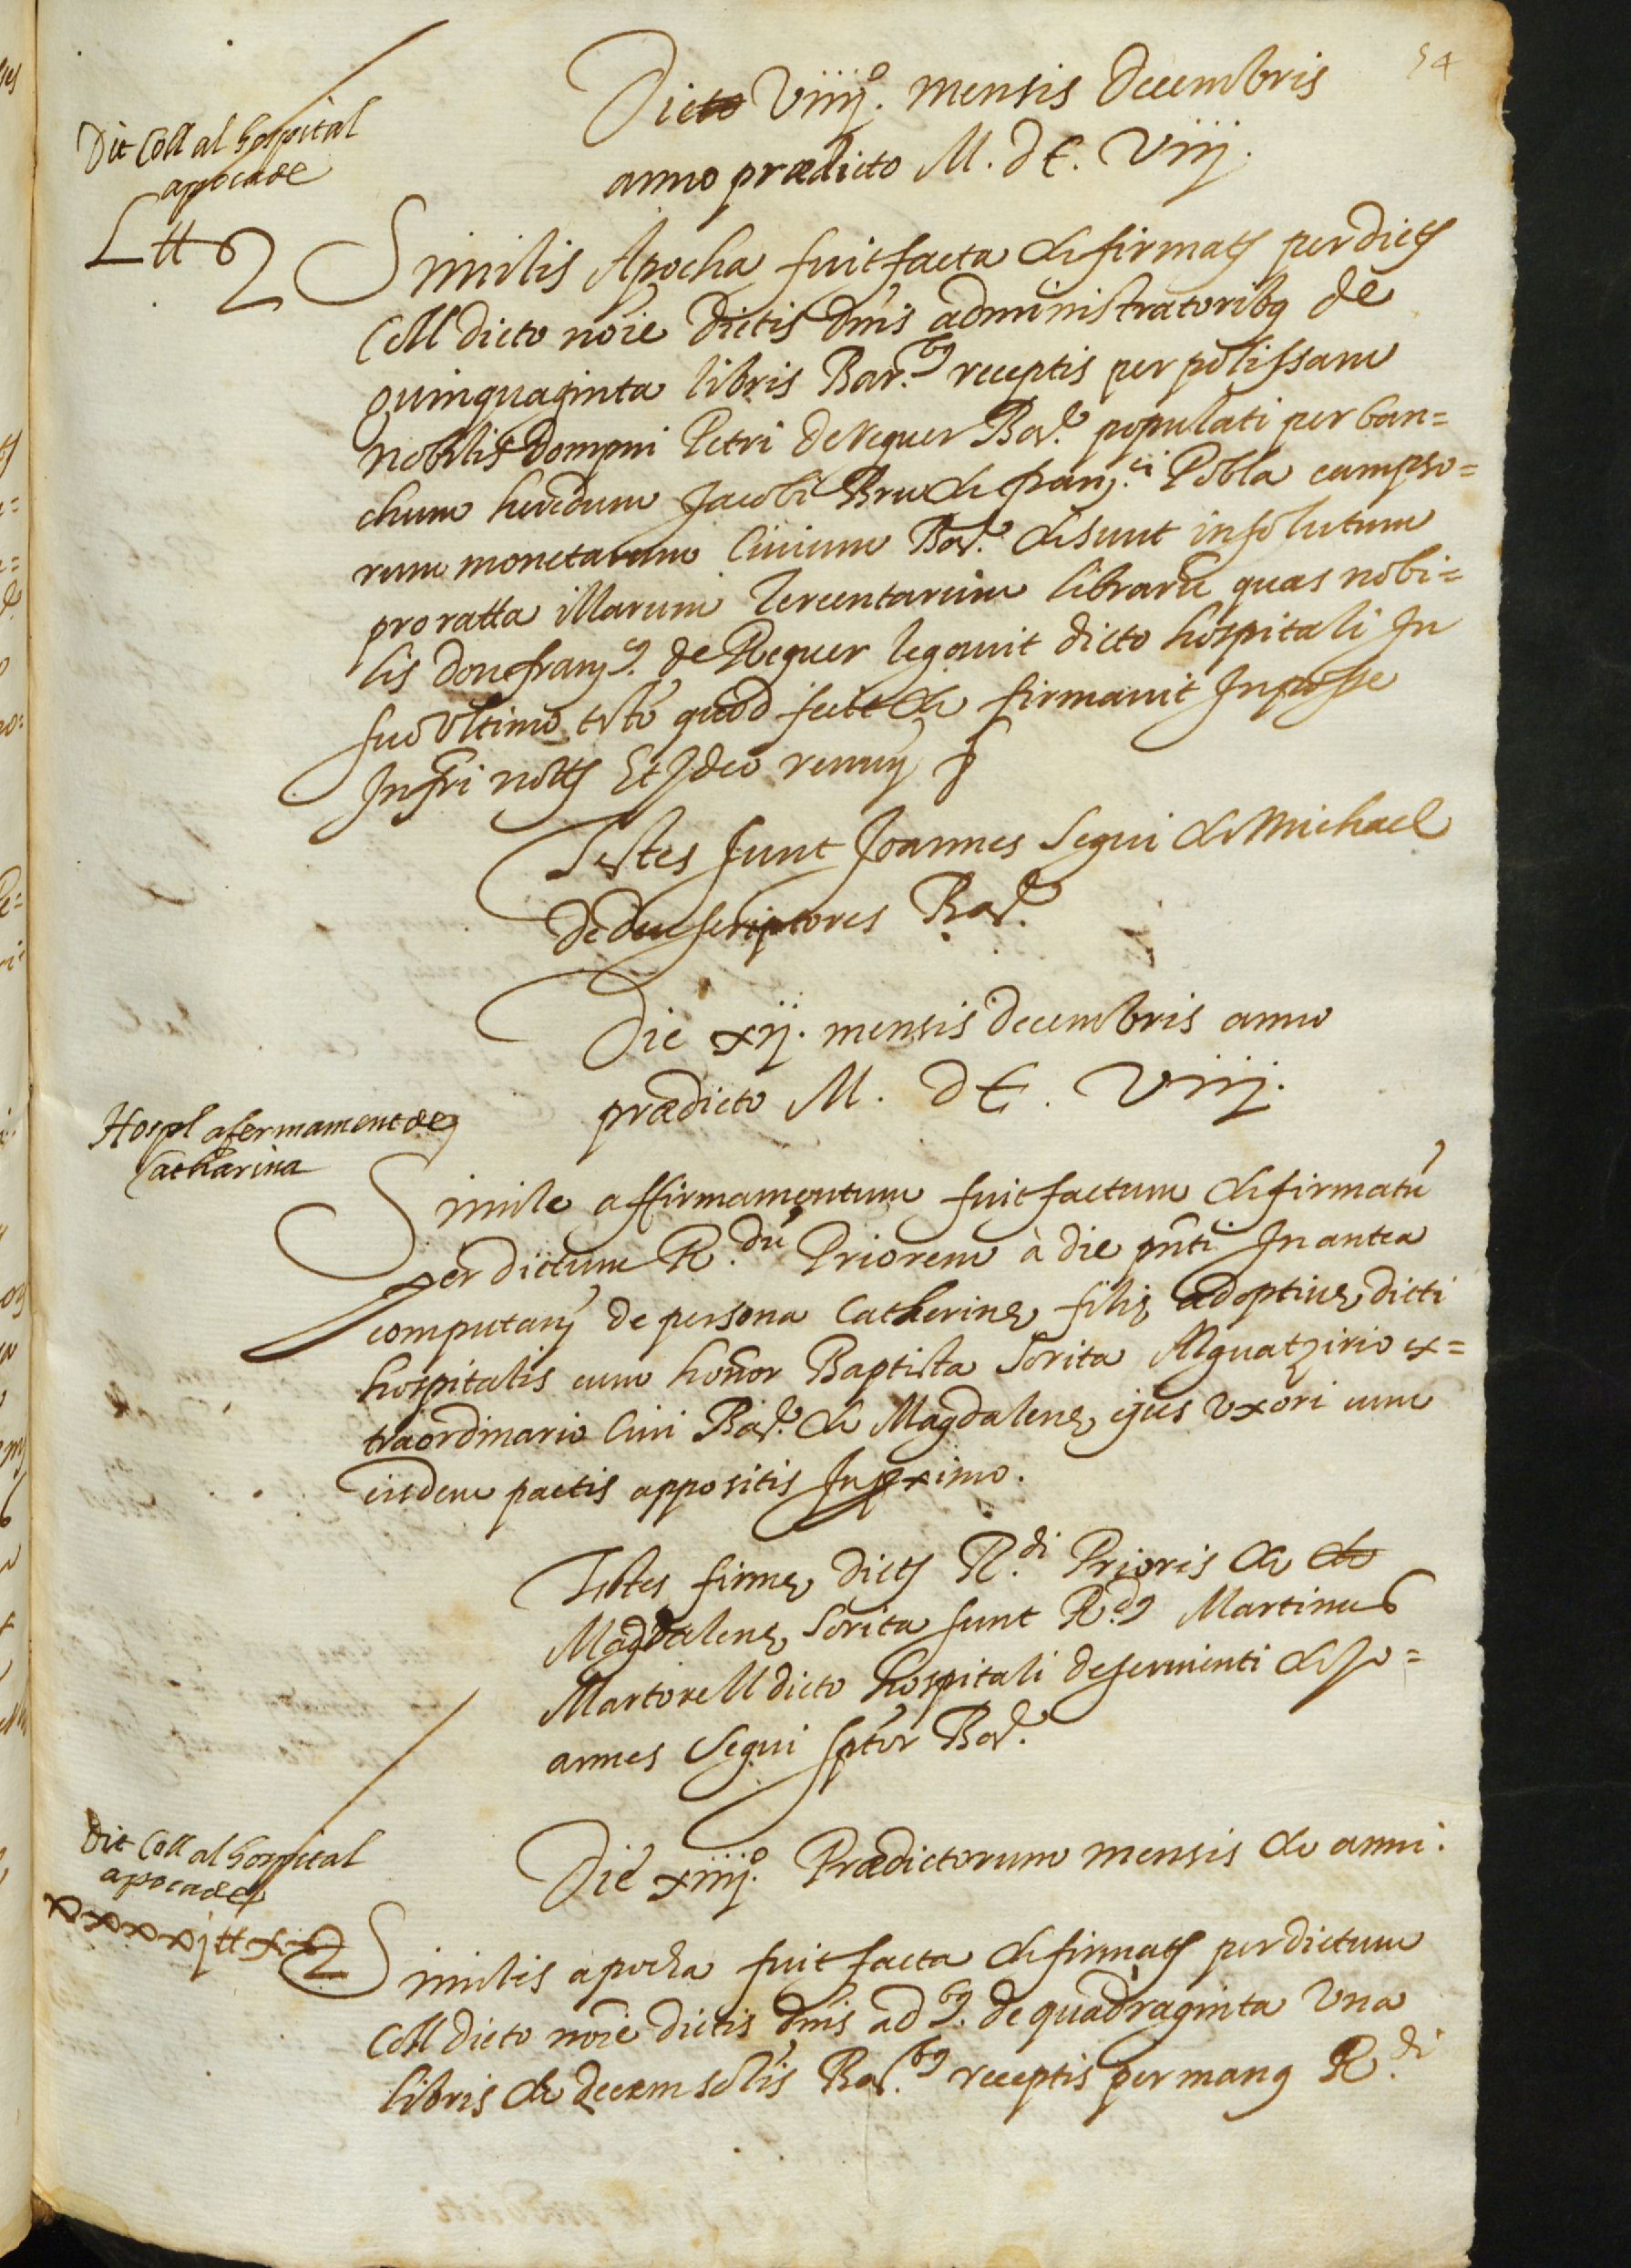 54
Die viiij.º mensis Decembris
anno prædicto M. dC. viij.
Dit Coll al hospital
apoca de
L tt
Similis Apocha fuit facta & firmata per dictum
Coll dicto noíe dictis dnís administratoribq de
quinquaginta libris Bar.bq receptis per polissam
nobilis dompni Petri de Reguer Bar.e populati per ban=
chum heredum Jacobi Bru & fran.ci Pobla campso=
rum monetarum Civium Bar.e & sunt insolutum
pro ratta illarum Tercentarum librarū quas nobi=
lis don fran.cq de Reguer legavit dicto hospitali In
suo Ultimo testo quod fecit & firmavit In posse
Infrī notts Et Ideo renunt &
Testes sunt Joannes Segui & Michael
Dedeu scriptores Bar.e
Die xij. mensis Decembris anno
prædicto M. dC. viij.
Hospl afermament de
Catharina
Simile affirmamentum fuit factum & firmatū
per dictum R.dū Priorem à die pnti In antea
computan de persona Catherinę filię adoptiuę dicti
hospitalis cum honor Baptista Sorita Alguatzirio ex=
traordinario Civi Bar.e & Magdalenę ejus Uxori cum
eisdem pactis appositis In pximo.
Testes firmę dicti R.di Prioris &
Magdalenę Sorita sunt R.dq Martinus
Martorell dicto hospitali deservienti & Jo=
annes Segui sptor Bar.e
Die xiiij.º Prædictorum mensis & anni.
Dit Coll al hospital
apoca de
xxxxj tt x
Similis apocha fuit facta & firmata per dictum
Coll dicto noíe dictis dnís ad.bq de quadraginta Una
libris & decem solis Bar.bq receptis per manq R.di